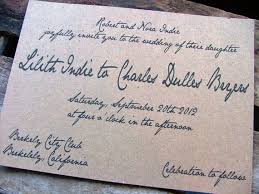 Robert and Nora Indie
joyfully invite you to the wedding of their daughter
Lilith Indie to Charles Dulles Bryers
Saturday, September 20th 2012
at four o'clock in the afternoon
Berkeley City Club
Berkeleley, California
Celebration to follow